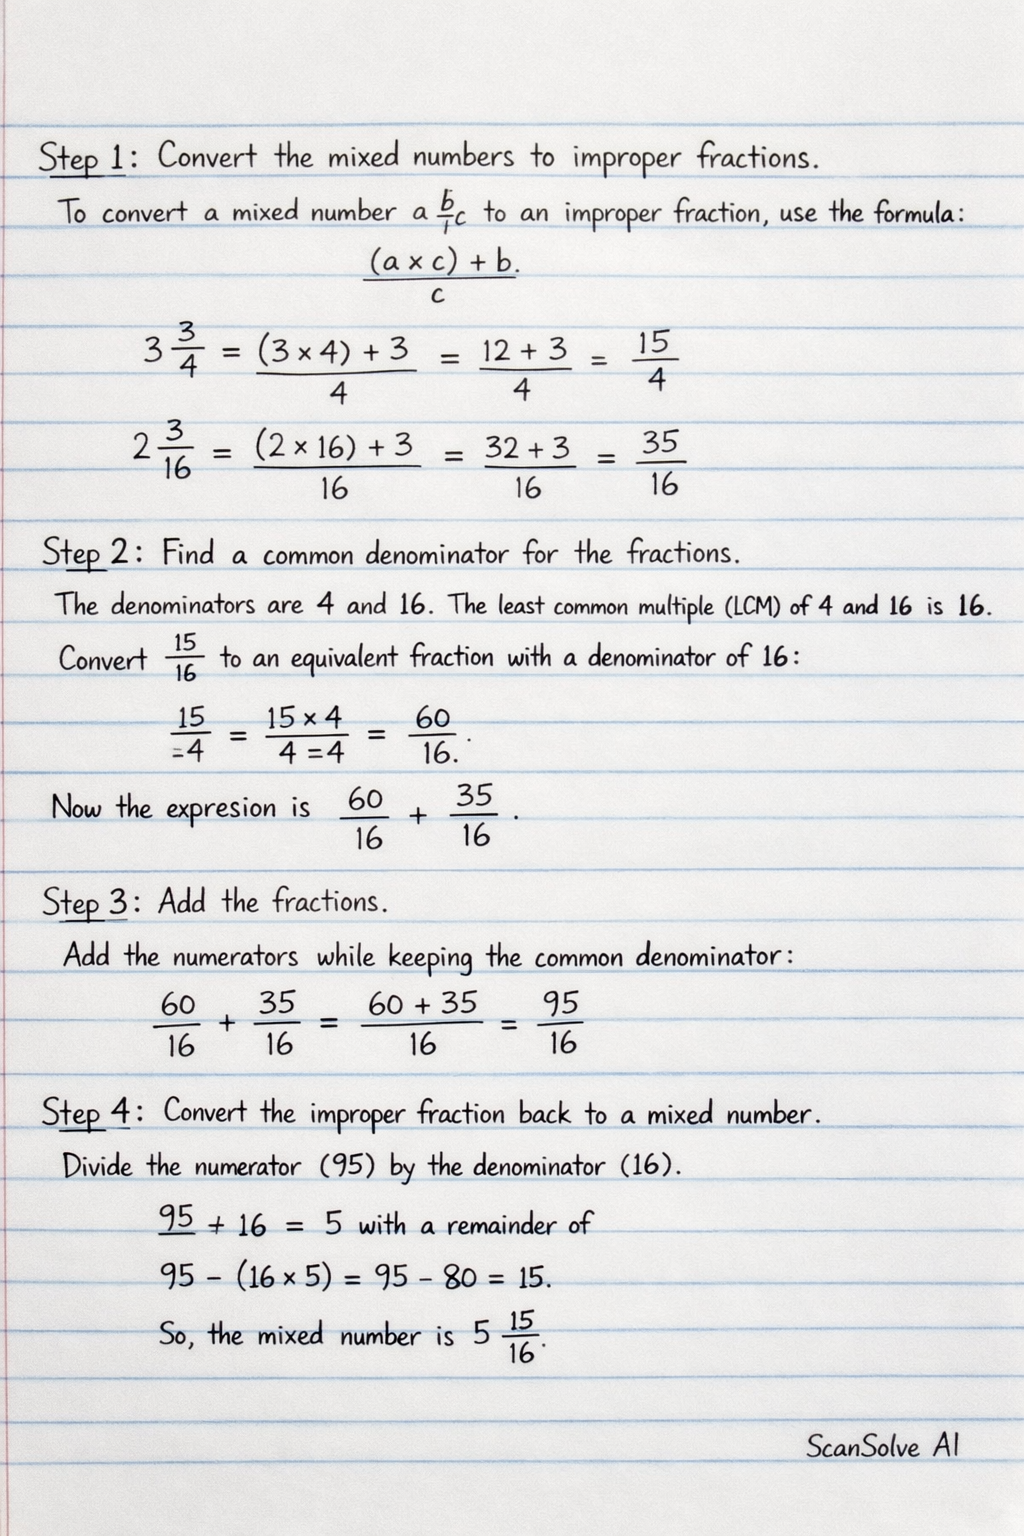 Step 1: Convert the mixed numbers to improper fractions.
To convert a mixed number a b/c to an improper fraction, use the formula:
(a × c) + b. / c
3 3/4 = (3 × 4) + 3 / 4 = 12 + 3 / 4 = 15/4
2 3/16 = (2 × 16) + 3 / 16 = 32 + 3 / 16 = 35/16
Step 2: Find a common denominator for the fractions.
The denominators are 4 and 16. The least common multiple (LCM) of 4 and 16 is 16.
Convert 15/16 to an equivalent fraction with a denominator of 16:
15/=4 = 15 × 4 / 4 =4 = 60/16.
Now the expresion is 60/16 + 35/16.
Step 3: Add the fractions.
Add the numerators while keeping the common denominator:
60/16 + 35/16 = 60 + 35 / 16 = 95/16
Step 4: Convert the improper fraction back to a mixed number.
Divide the numerator (95) by the denominator (16).
95 + 16 = 5 with a remainder of
95 - (16 × 5) = 95 - 80 = 15.
So, the mixed number is 5 15/16.
ScanSolve AI